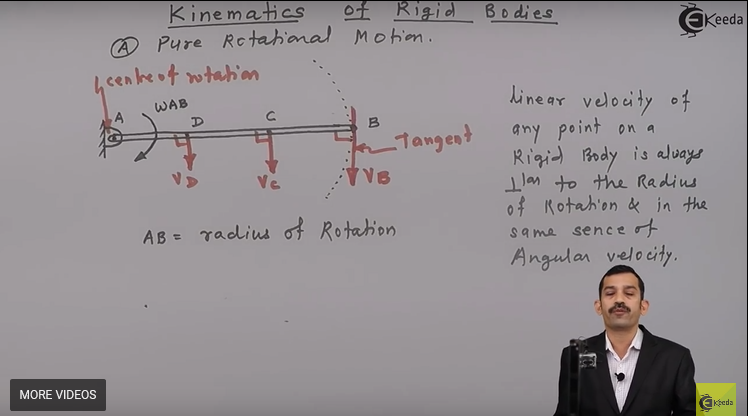 Kinematics of Rigid Bodies
Ekeeda
A Pure Rotational Motion.
centre of rotation
A
WAB
D
C
B
Tangent
VD
VC
VB
AB = radius of Rotation
Linear velocity of
any point on a
Rigid Body is always
⊥lar to the Radius
of Rotation & in the
same sence of
Angular velocity.
MORE VIDEOS
Ekeeda